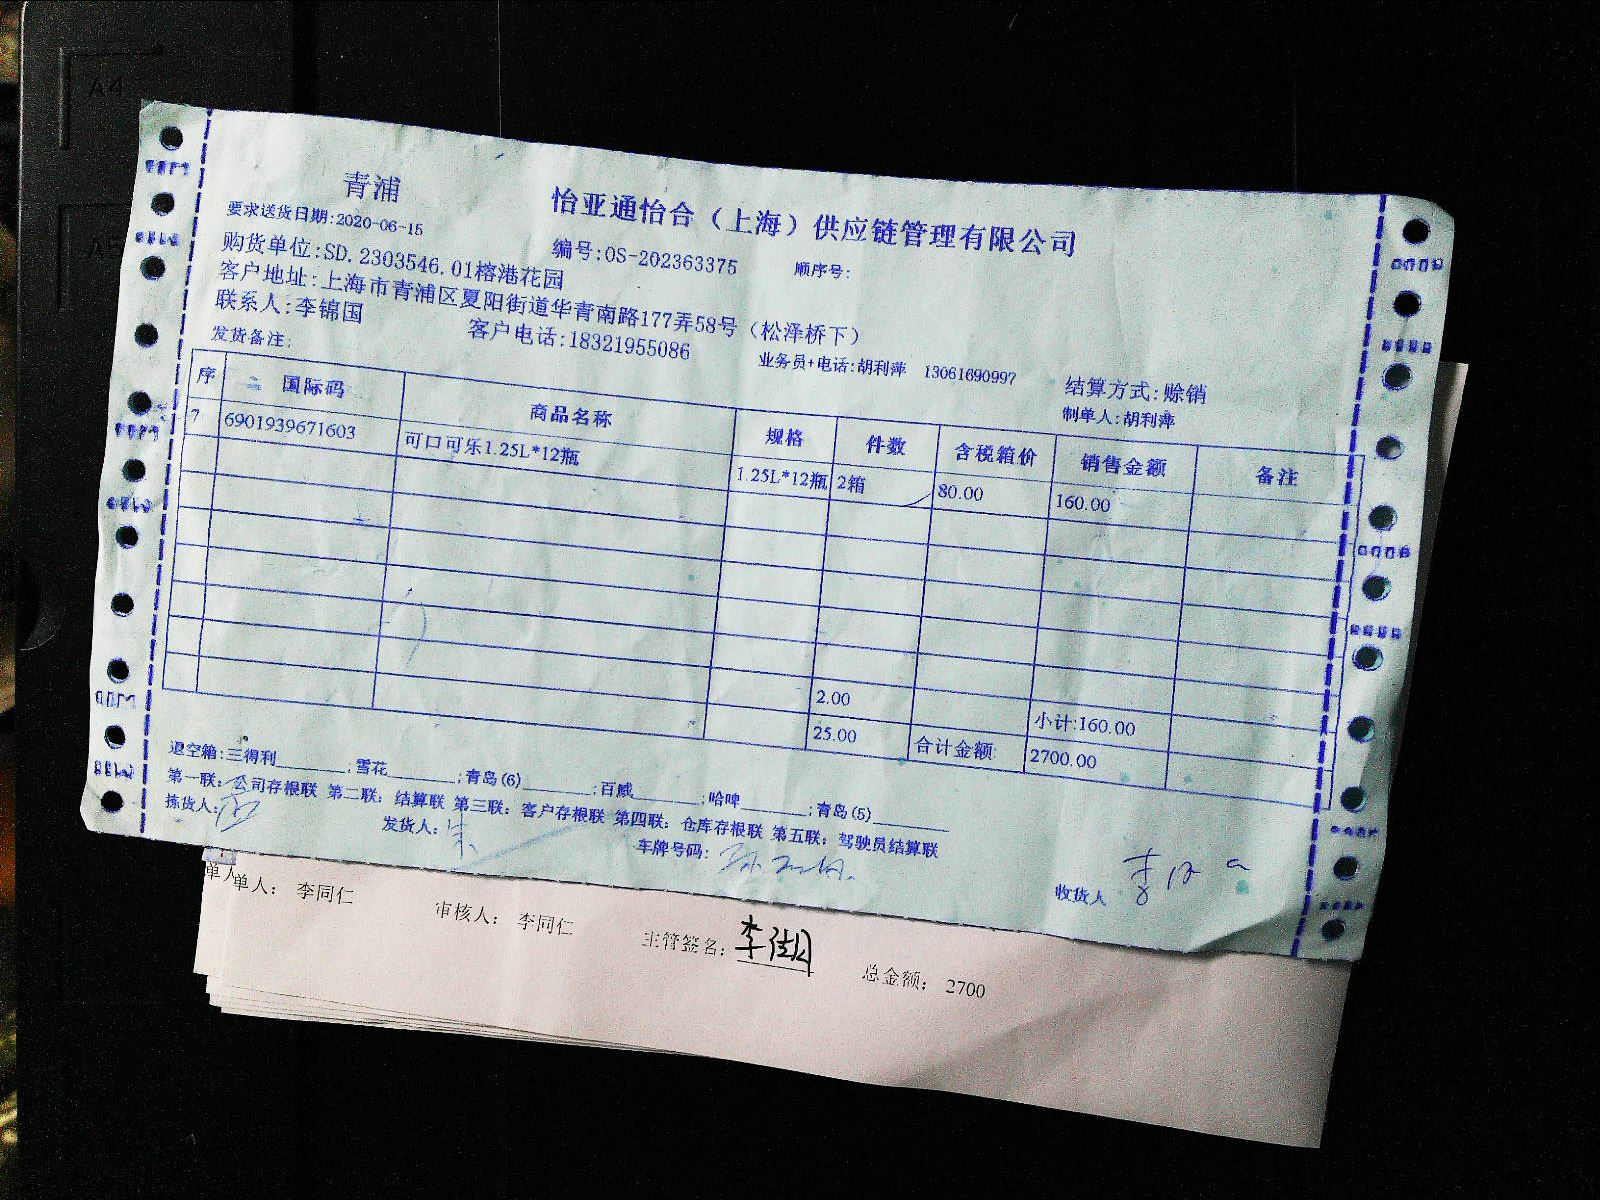 A4
A5
青浦
怡亚通怡合（上海）供应链管理有限公司
要求送货日期:2020-06-15
编号:OS-202363375
顺序号:
购货单位:SD.2303546.01榕港花园
客户地址:上海市青浦区夏阳街道华青南路177弄58号（松泽桥下）
联系人:李锦国
客户电话:18321955086
业务员+电话:胡利萍 13061690997
结算方式:赊销
发货备注:
制单人:胡利萍
序 国际码 商品名称 规格 件数 含税箱价 销售金额 备注
7 6901939671603 可口可乐1.25L*12瓶 1.25L*12瓶 2箱 80.00 160.00
2.00 小计:160.00
25.00 合计金额: 2700.00
退空箱:三得利________;雪花________;青岛(6)________;百威________;哈啤________;青岛(5)________
第一联:公司存根联 第二联: 结算联 第三联: 客户存根联 第四联: 仓库存根联 第五联: 驾驶员结算联
拣货人:
发货人:
车牌号码:
收货人
单人
单人: 李同仁
审核人: 李同仁
主管签名:
总金额: 2700